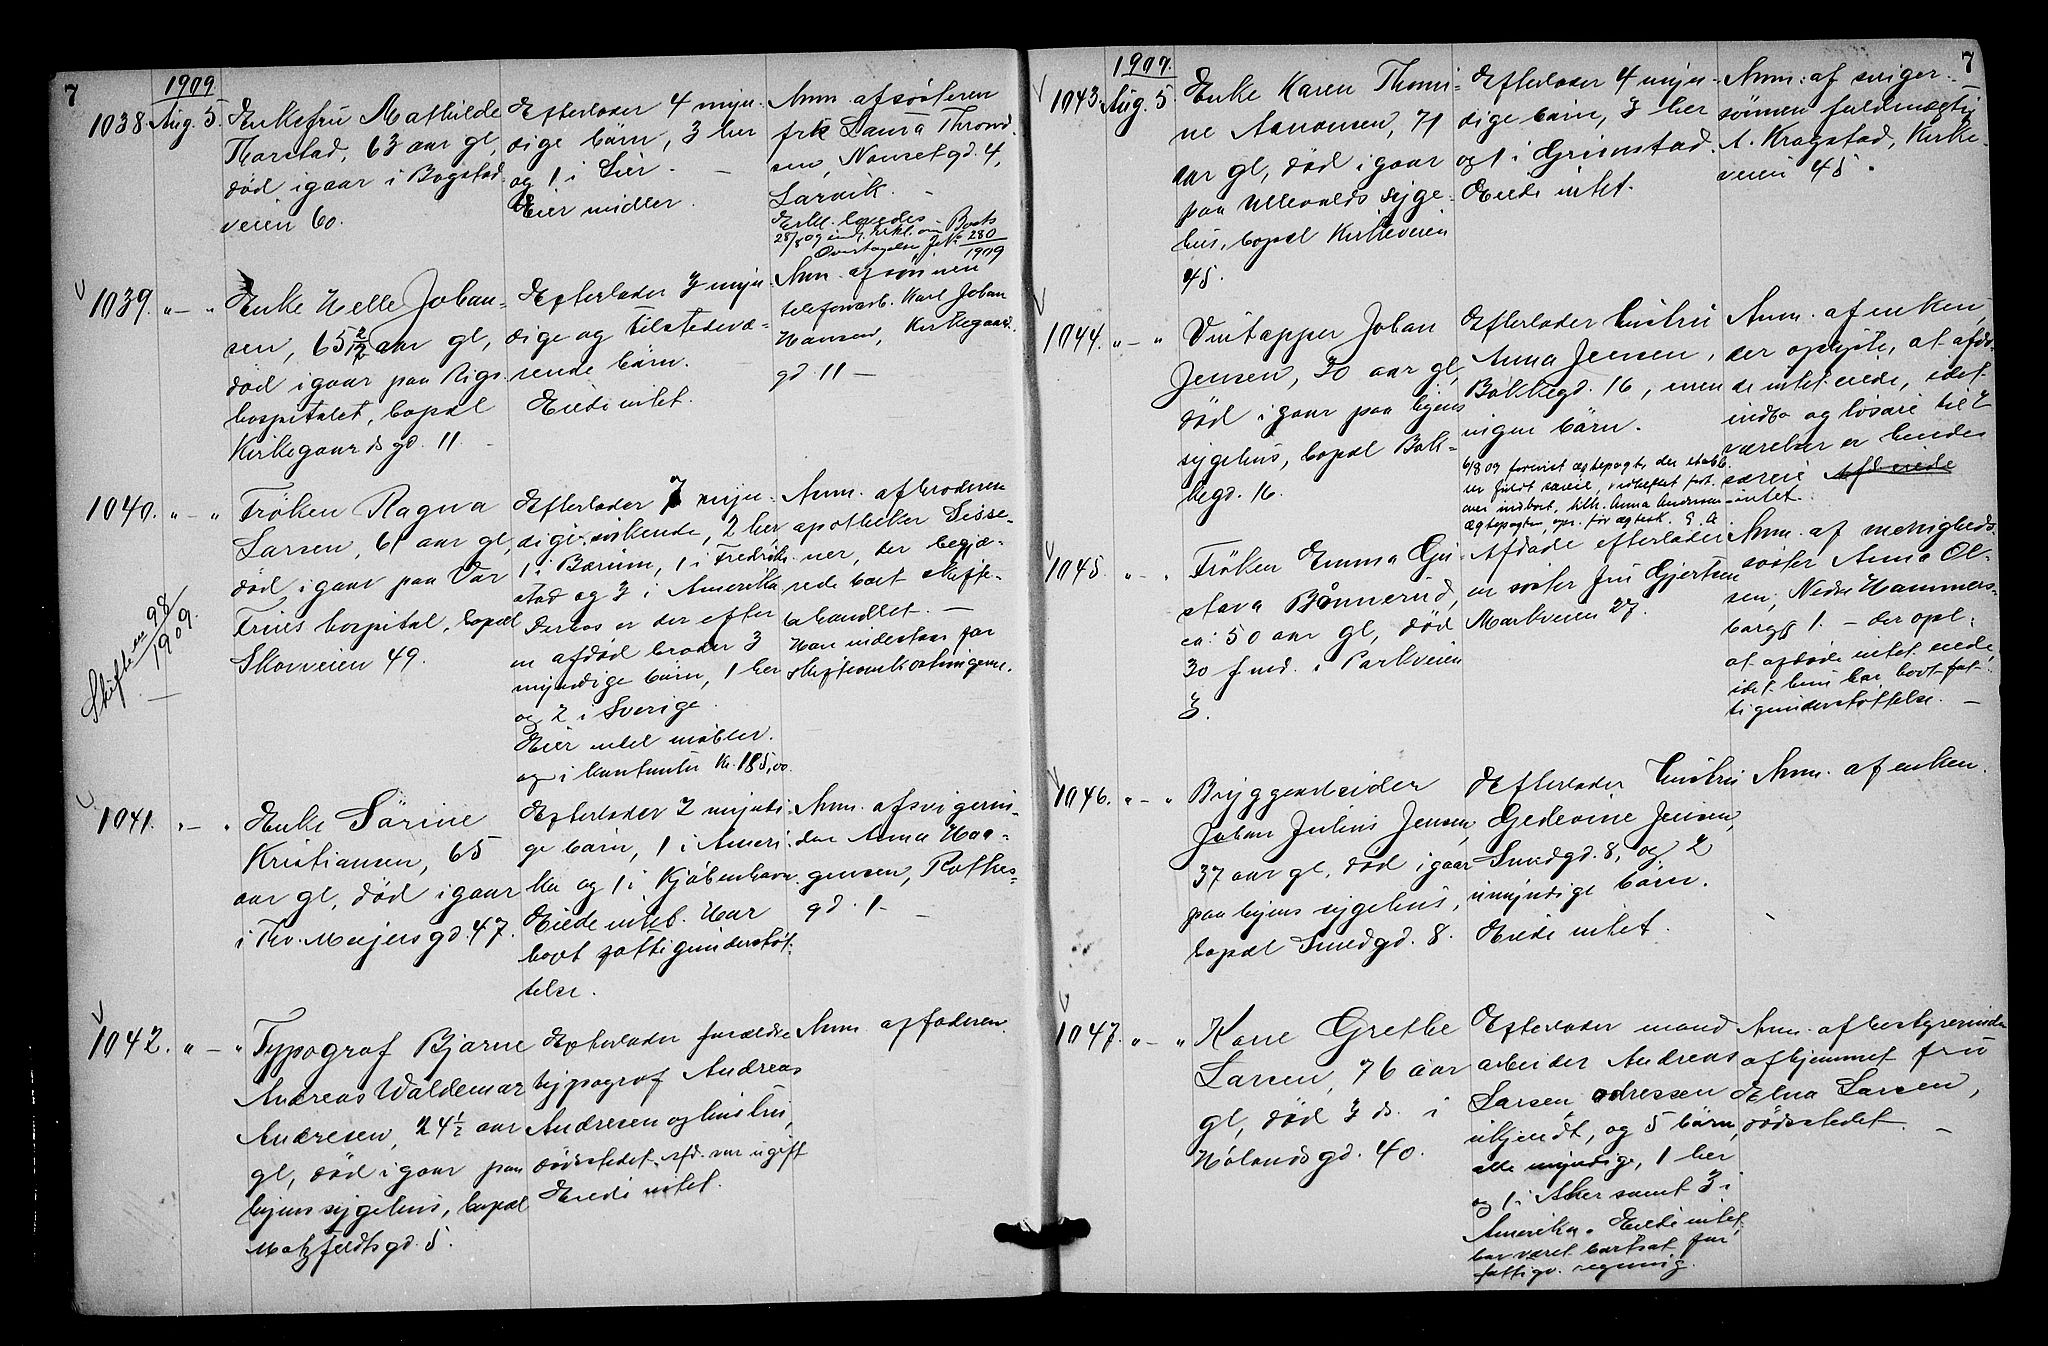 7
1909.
1038 Aug. 5.
Enkefru Mathilde
Thorstad, 63 aar gl,
død igaar i Bogstad
veien 60.
Efterlader 4 myn-
dige børn, 3 her
og 1 i Lier. —
Eier midler.
Anm. af søsteren
frk Laura Thrond
sen, Nansetgd. 4,
Larvik. —
Erkl. lovedes
28/8 09 indk. erkl. om Boets
Overtagelse J.№ 280/1909
1039. " — "
Enke Helle Johan-
sen, 65 2/12 aar gl,
død igaar paa Rigs
hospitalet, bopæl
Kirkegaardsgd. 11. —
Efterlader 3 myn
dige og tilstedevæ-
rende børn.
Eiede intet.
Anm. af sønnen
telefonarb. Karl Johan
Hansen, Kirkegaard.
gd. 11 —
1040. " — "
Skiftev. 98/1909.
Frøken Ragna
Larsen, 61 aar gl,
død igaar paa Vor
Frues hospital, bopæl
Skovveien 49.
Efterlader 7 myn-
dige søskende, 2 her
1 i Bærum, 1 i Fredrik
stad og 3 i Amerika
Dernæs er der efter
en afdød broder 3
myndige børn, 1 her
og 2 i Sverige.
Eier endel møbler.
og i kontanter Kr. 185,00.
Anm. af broderen
apotheker Sisse-
ner, der begjæ-
rede boet skifte-
behandlet. —
Han indestaar for
skifteomkostningerne.
1041. " — "
Enke Sørine
Kristiansen, 65
aar gl, død igaar
i Thv. Meyersgd. 47.
Efterlader 2 myndi
ge børn, 1 i Ameri
ka og 1 i Kjøbenhavn.
Eiede intet. Har
havt fattigunderstøt-
telse.
Anm. af svigerin-
den Anna Haa-
gensen, Rathkes-
gd. 1. —
1042. " — "
Typograf Bjarne
Andreas Waldemar
Andresen, 24½ aar
gl, død igaar paa
byens sygehus, bopæl
Motzfeldtsgd. 5.
Efterlader forældre
typograf Andreas
Andresen og hustru,
dødsstedet. Afd. var ugift
Eiede intet.
Anm. af faderen.
7
1909.
1043 Aug. 5.
Enke Karen Thomi-
ne Aanonsen, 71
aar gl, død igaar
paa Ullevaals syge-
hus, bopæl Kirkeveien
45.
Efterlader 4 myn-
dige børn, 3 her
og 1 i Grimstad.
Eiede intet.
Anm. af sviger-
sønnen fuldmægtig
A. Kragstad, Kirke-
veien 45.
1044. " — "
Vintapper Johan
Jensen, 30 aar gl,
død igaar paa byens
sygehus, bopæl Bak-
kegd. 16.
Efterlader hustru
Anna Jensen,
Bakkegd. 16, men
ingen børn.
6/8 09 forevist ægtepagt, der etabl.
en fuldt særeie, vedheftet fort.
over indbort, tilh. Anna Andersen
Ægtepagten opr. før ægtesk. E. A
Anm. af enken,
der oplyste, at afdø-
de intet eiede, idet
indbo og løsøre til 2
værelser er hendes
særeie Afd eiede
intet.
1045. " — "
Frøken Emma Gu-
stava Bønnerud,
ca: 50 aar gl, død
30 f md. i Parkveien
3.
Afdøde efterlader
en søster fru Gjertsen
Markveien 27.
Anm. af menigheds
søster Anna Ol-
sen, Nedre Hammers-
borgg 1. — der opl.
at afdøde intet eiede,
idet hun har havt fat-
tigunderstøttelse. —
1046. " — "
Bryggearbeider
Johan Julius Jensen,
37 aar gl, død igaar
paa byens sygehus,
bopæl Smedgd. 8.
Efterlader hustru
Gedevine Jensen,
Smedgd. 8, og 2
umyndige børn.
Eiede intet.
Anm. af enken.
1047. " — "
Kone Grethe
Larsen, 76 aar
gl, død 3 ds. i
Hølandsgd. 40.
Efterlader mand
arbeider Andreas
Larsen, adressen
ukjendt, og 5 børn,
alle myndige, 1 her
og 1 i Aker samt 3 i
Amerika. Eiede intet
har været bortsat for
fattigv. regning.
Anm. af bestyrerinden
af hjemmet fru
Elna Larsen,
dødsstedet. —